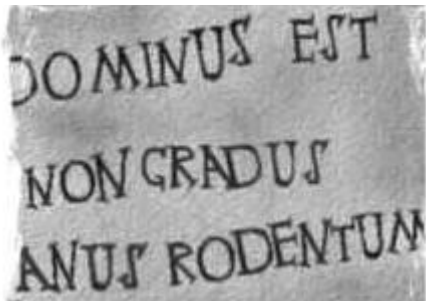 DOMINUS EST
NON GRADUS
ANUS RODENTUM